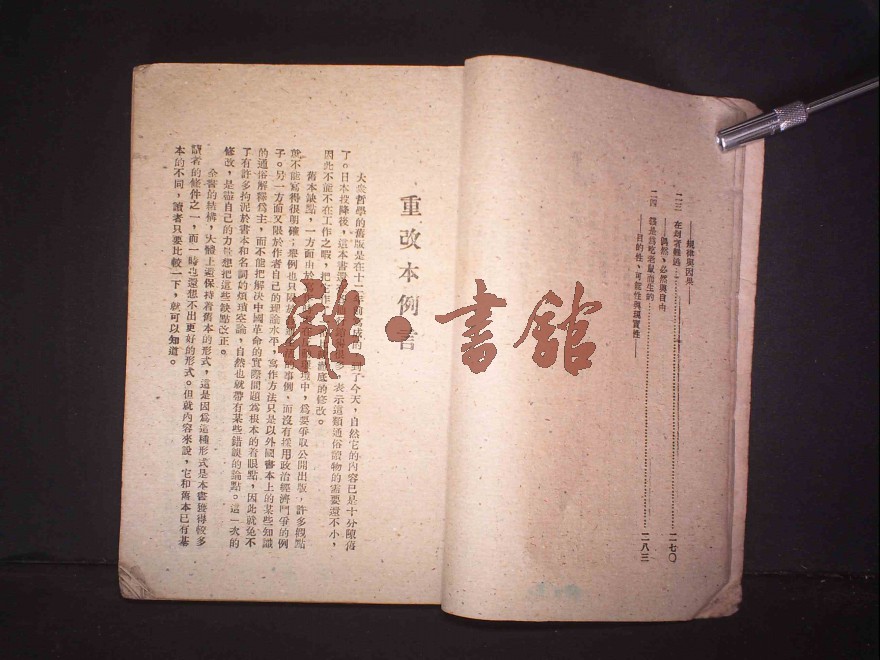 ——規律與因果——
二三 在劫者難逃……二七〇
——偶然、必然與自由
二四 貓是為吃老鼠而生的……二八三
——目的性、可能性與現實性——
重改本例言
大衆哲學的舊版是在十二年前寫成的
到了今天，自然它的內容已是十分陳舊
了。日本投降後，這本書還
表示這類通俗讀物的需要還不小，
因此不能不在工作之暇，把它作
澈底的修改。
舊本缺點，一方面由於
環境中，爲要爭取公開出版，許多觀點
就不能寫得很明確；舉例也只限於
的事例，而沒有採用政治經濟鬥爭的例
子。另一方面又限於作者自己的理論水平，寫作方法只是以外國書本上的某些知識
的通俗解釋爲主，而不能把解決中國革命的實際問題爲根本的着眼點，因此就免不
了有許多拘泥於書本和名詞的煩瑣空論，自然也就帶有某些錯誤的論點。這一次的
修改，是盡自己的力量想把這些缺點改正。
全書的結構，大體上還保持着舊本的形式，這是因爲這種形式是本書獲得較多
讀者的條件之一，而一時也還想不出更好的形式。但就內容來說，它和舊本已有基
本的不同，讀者只要比較一下，就可以知道。
雜·書館